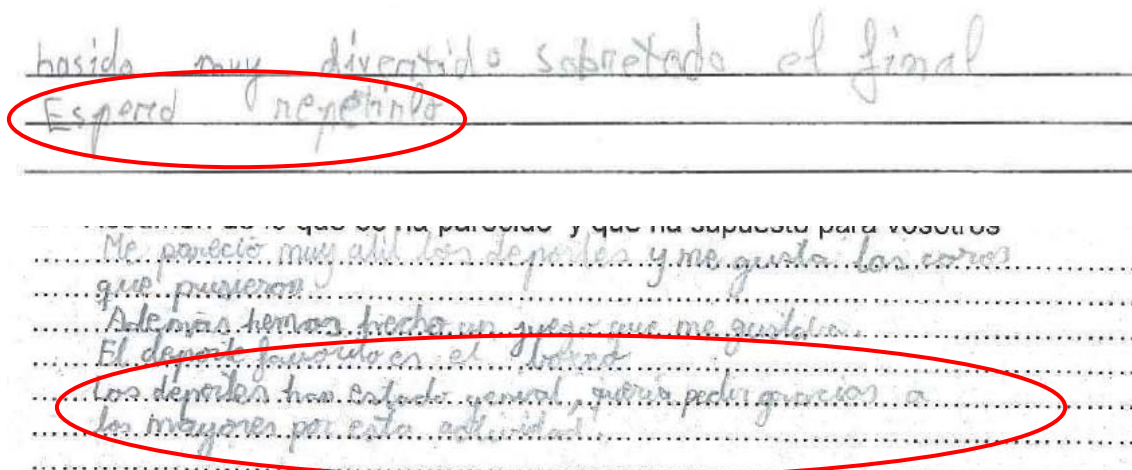 hasido muy divertido sobretodo el final
Espero repetirlo
Resumen de lo que os ha parecido y que ha supuesto para vosotros
Me pareció muy util los deportes y me gusta las cosas
que pusieron
Además hemos hecho un juego que me gustaba.
El deporte favorito es el
Los deportes han estado genial, quería pedir gracias a
los mayores por esta actividad.